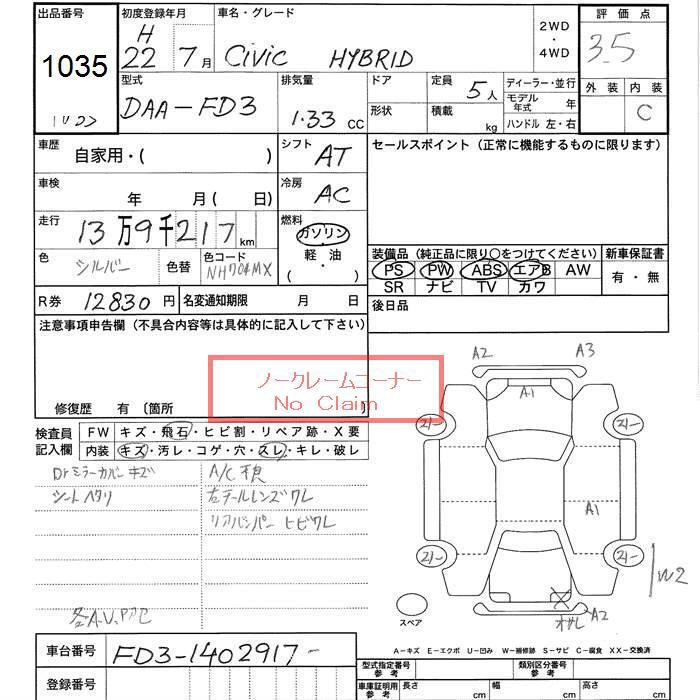 出品番号 初度登録年月 車名・グレード 2WD・4WD 評価点
1035 H 22 7月 Civic HYBRID 3.5
型式 排気量 ドア 定員 5人 ディーラー・並行 外装 内装
DAA-FD3 1.33 CC 形状 積載 kg モデル年式 年 C
ハンドル 左・右
車歴 自家用・( ) シフト AT セールスポイント(正常に機能するものに限ります)
車検 年 月(日) 冷房 AC
走行 13万9千217km 燃料 ガソリン・軽油・( )
色 シルバー 色替 色コード NH704MX
装備品(純正品に限り○をつけてください) 新車保証書
PS PW ABS エアB AW 有・無
SR ナビ TV カワ
R券 12830円 名変通知期限 月 日 後日品
注意事項申告欄(不具合内容等は具体的に記入して下さい)
ノークレームコーナー
No Claim
修復歴 有〔箇所 〕
A2 A3
A1
検査員記入欄 FW キズ・飛石・ヒビ割・リペア跡・X要
内装 キズ・汚レ・コゲ・穴・スレ・キレ・破レ
Drミラーカバーキズ A/C不良
シートヘタリ 左テールレンズワレ
リアバンパーヒビワレ
A1
W2
A2
スペア
A-キズ E-エクボ U-凹み W-補修跡 S-サビ C-腐食 XX-交換済
車台番号 FD3-1402917-
登録番号
型式指定番号参考 類別区分番号参考
車庫証明用参考 長さ cm 幅 cm 高さ cm